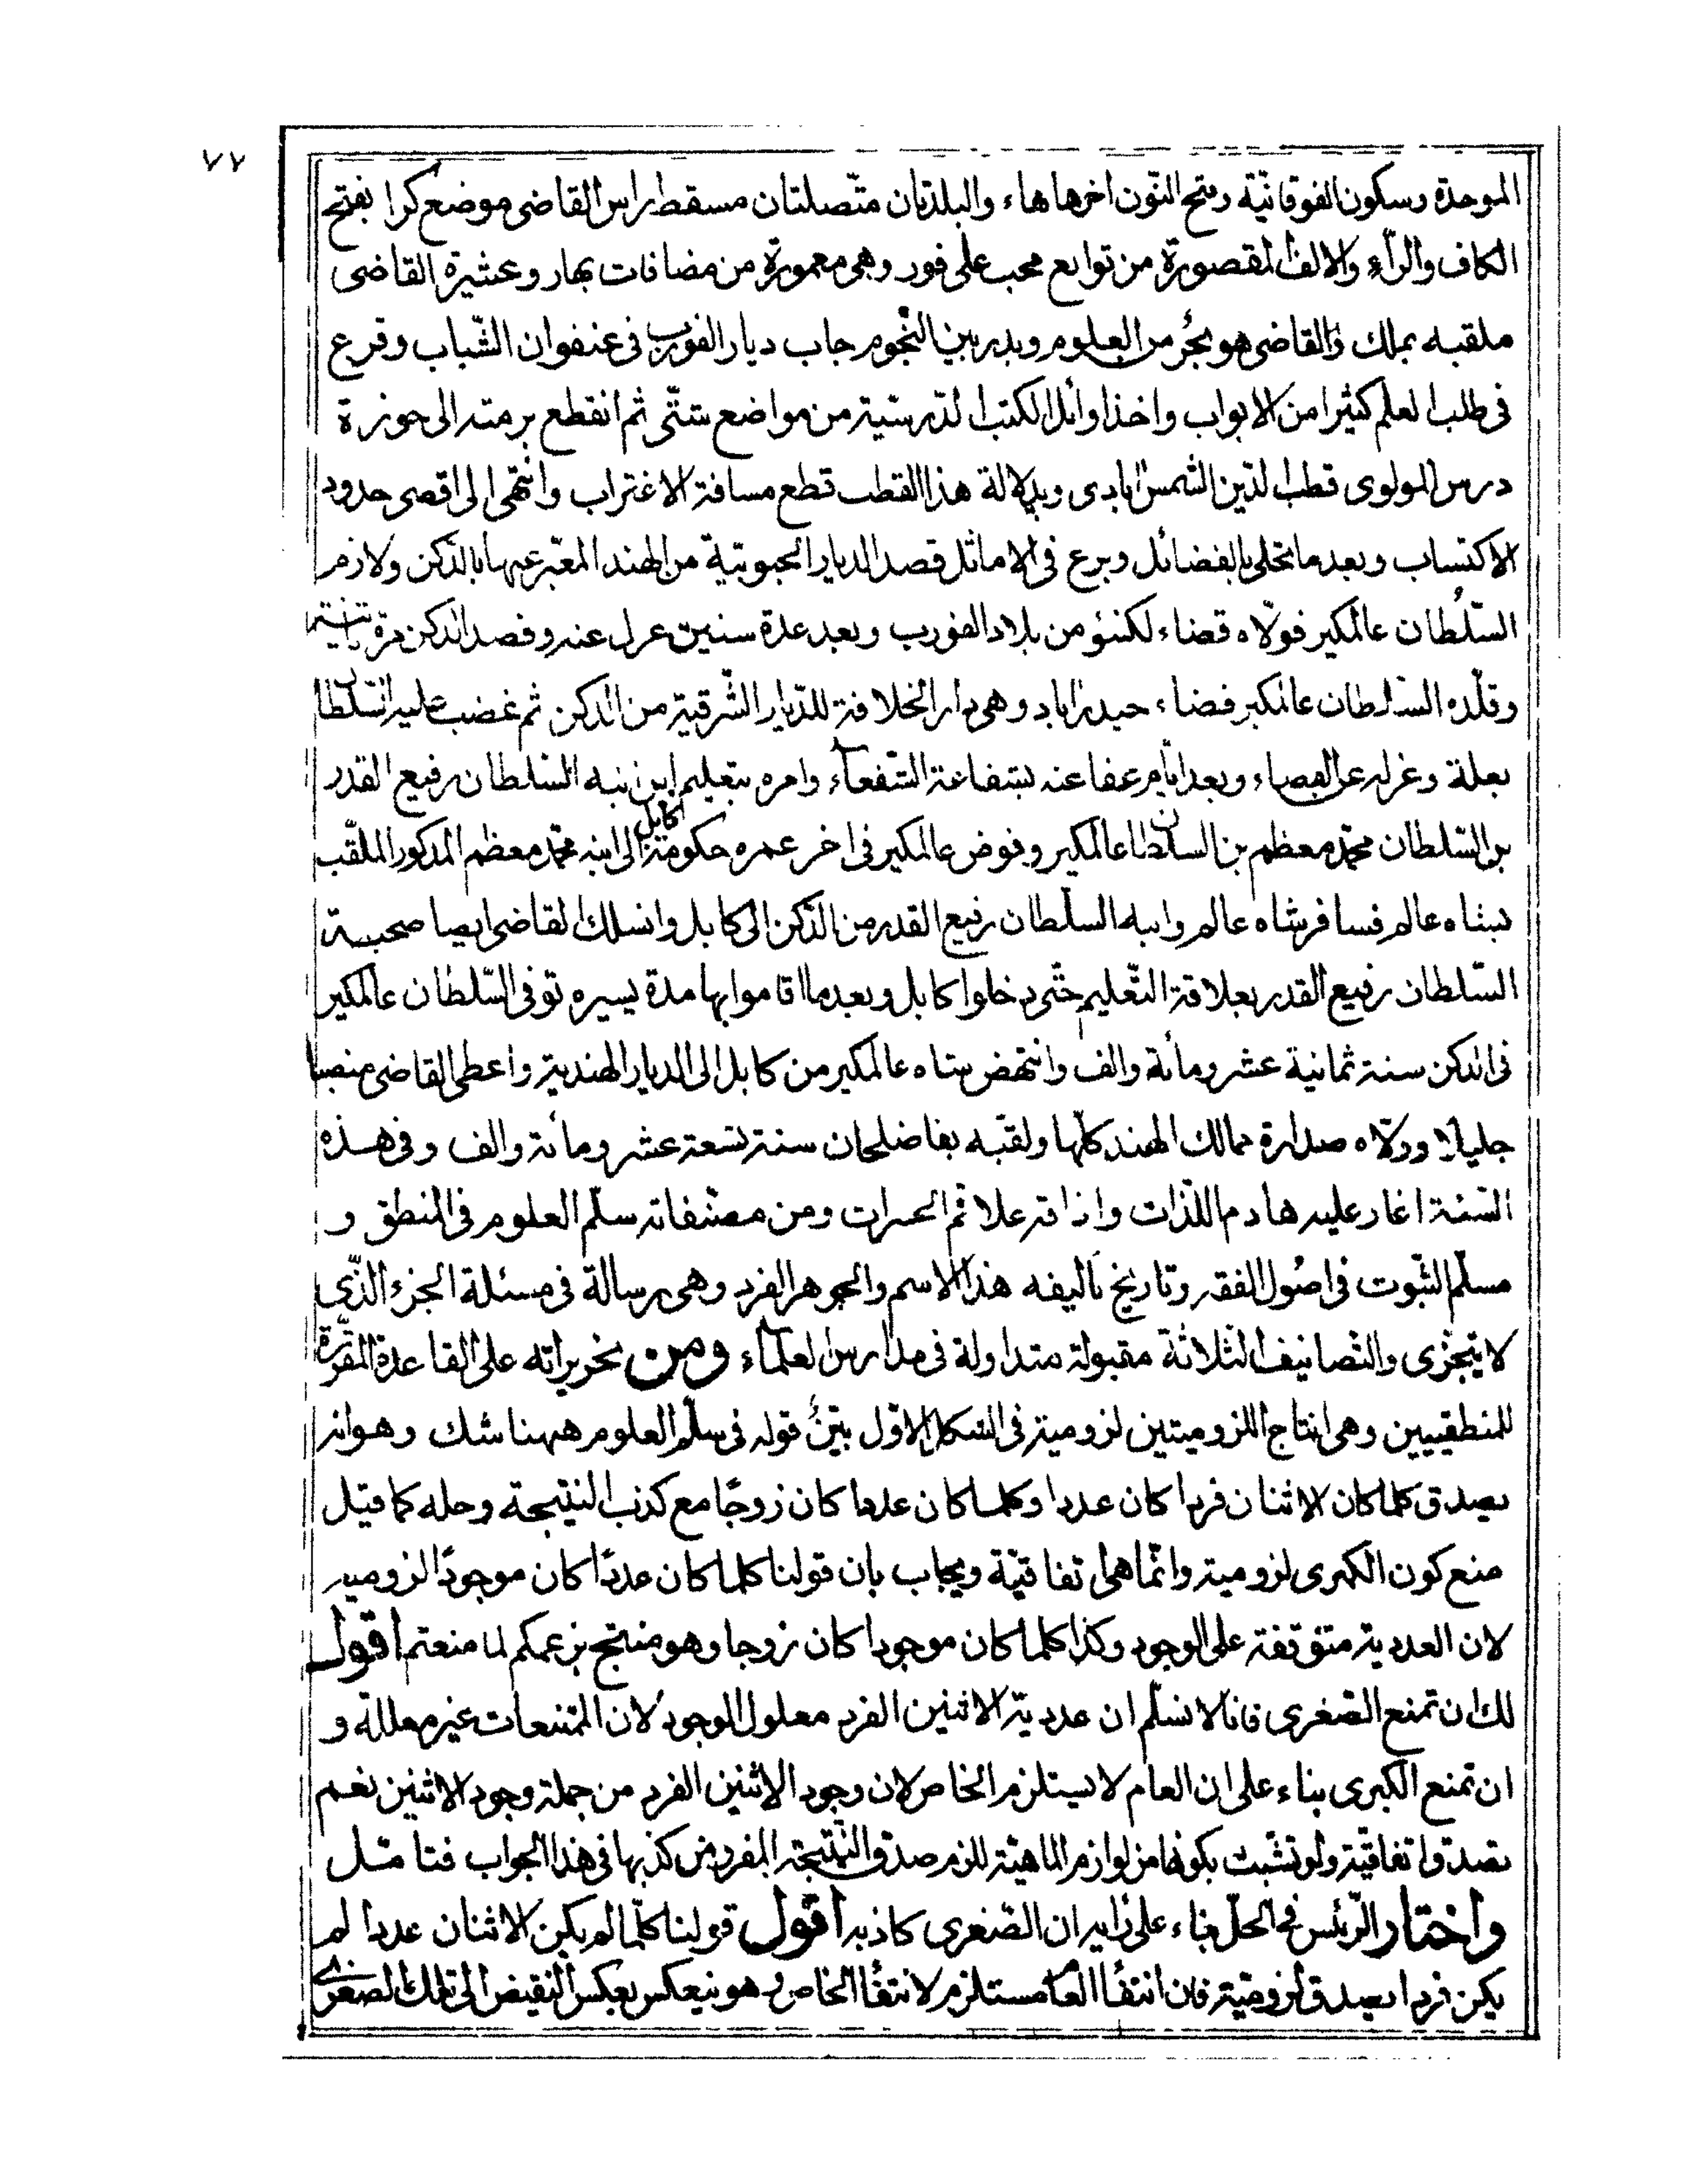 ٧٧
الموحدة وسكون الفوقانيّة وفتح النّون اخرها هاء والبلدتان متّصلتان مسقط راس القاضى موضع كرا بفتح
الكاف والرّاء والالف المقصورة من توابع محب على فور وهى معمورة من مضافات بهار وعشيرة القاضى
ملقبه بملك والقاضى هو بحرٌ من العلوم وبدر بين النّجوم جاب ديار الفورب فى عنفوان الشّباب وقرع
فى طلب العلم كثيرا من الابواب واخذ اوائل الكتب الدّرسيّة من مواضع شتّى ثم انقطع برمته الى حوزة
درس المولوى قطب الدّين الشّمس ابادى وبدلالة هذا القطب قطع مسافة الاغتراب وانتهى الى اقصى حدود
الاكتساب وبعد ما تحلى بالفضائل وبرع فى الاماثل قصد الديار الجنوبيّة من الهند المعبّر عنها بالدّكن ولازم
السّلطان عالمكير فولّاه قضاء لكنئو من بلاد الفورب وبعد عدة سنين عزل عنه وقصد الدكن مرة ثانية
وقلّده السّلطان عالمكير قضاء حيدراباد وهى دار الخلافة للدّيار الشّرقية من الدكن ثم غضب عليه السّلطان
بعلة وعزله عن القضاء وبعد ايّام عفا عنه بشفاعة الشّفعاء وامره بتعليم ابن ابنه السّلطان رفيع القدر
بن السّلطان محمّد معظم بن السلطان عالمكير وفوض عالمكير فى اخر عمره حكومة كابل الى ابنه محمّد معظم المذكور الملقّب
بشاه عالم فسافر شاه عالم وابنه السلّطان رفيع القدر من الدّكن الى كابل وانسلك القاضى ايضا صحبة
السّلطان رفيع القدر بعلاقة التّعليم حتّى دخلوا كابل وبعد ما اقاموا بها مدة يسيره توفى السّلطان عالمكير
فى الدكن سنة ثمانية عشر ومائة والف وانتهض شاه عالمكير من كابل الى الديار الهندية واعطى القاضى منصبا
جليلا وولّاه صدارة ممالك الهند كلّها ولقّبه بفاضلخان سنة تسعة عشر ومائة والف وفى هذه
السّنة اغار عليه هادم اللذّات واذاقه علاقم الحسرات ومن مصنّفاته سلّم العلوم فى المنطق و
مسلّم الثّبوت فى اصُول الفقه وتاريخ تاليفه هذا الاسم والجوهر الفرد وهى رسالة فى مسئلة الجزء الذّى
لا يتجزى والتّصانيف الثّلاثة مقبولة متداولة فى مدارس العلماء ومن تحريراته على القاعدة المقرّرة
للمنطقيين وهى انتاج اللزوميتين لزومية فى الشكل الاوّل بيّنٌ قوله فى سلّم العلوم ههنا شك وهو انه
يصدق كلما كان الاثنان فردا كان عددا وكلما كان عددا كان زوجًا مع كذب النتيجة وحله كما قيل
منع كون الكبرى لزومية وانّما هى اتفاقيّة ويجاب بان قولنا كلما كان عددًا كان موجودًا لزومية
لان العددية متوقفة على الوجود وكذا كلما كان موجودا كان زوجا وهو منتج بزعمكم لما منعتم اقول
لك ان تمنع الصّغرى فانا لا نسلّم ان عدديّة الاثنين الفرد معلول الوجود لان الممتنعات غير معللة و
ان تمنع الكبرى بناء على ان العام لا يستلزم الخاص لان وجود الاثنين الفرد من جملة وجود الاثنين نعم
تصدق اتفاقيّة ولو تشبث بكونها من لوازم الماهيّة للزم صدق النّتيجة المفروض كذبها فى هذا الجواب فتأمّل
واختار الرّئيس فى الحلّ بناء على رايه ان الصّغرى كاذبه اقول قولنا كلّما لم يكن الاثنان عددا لم
يكن فردا يصدق لزوميّة فان انتفاء العام مستلزم لانتفاء الخاص وهو ينعكس بعكس النقيض الى تلك الصغرى